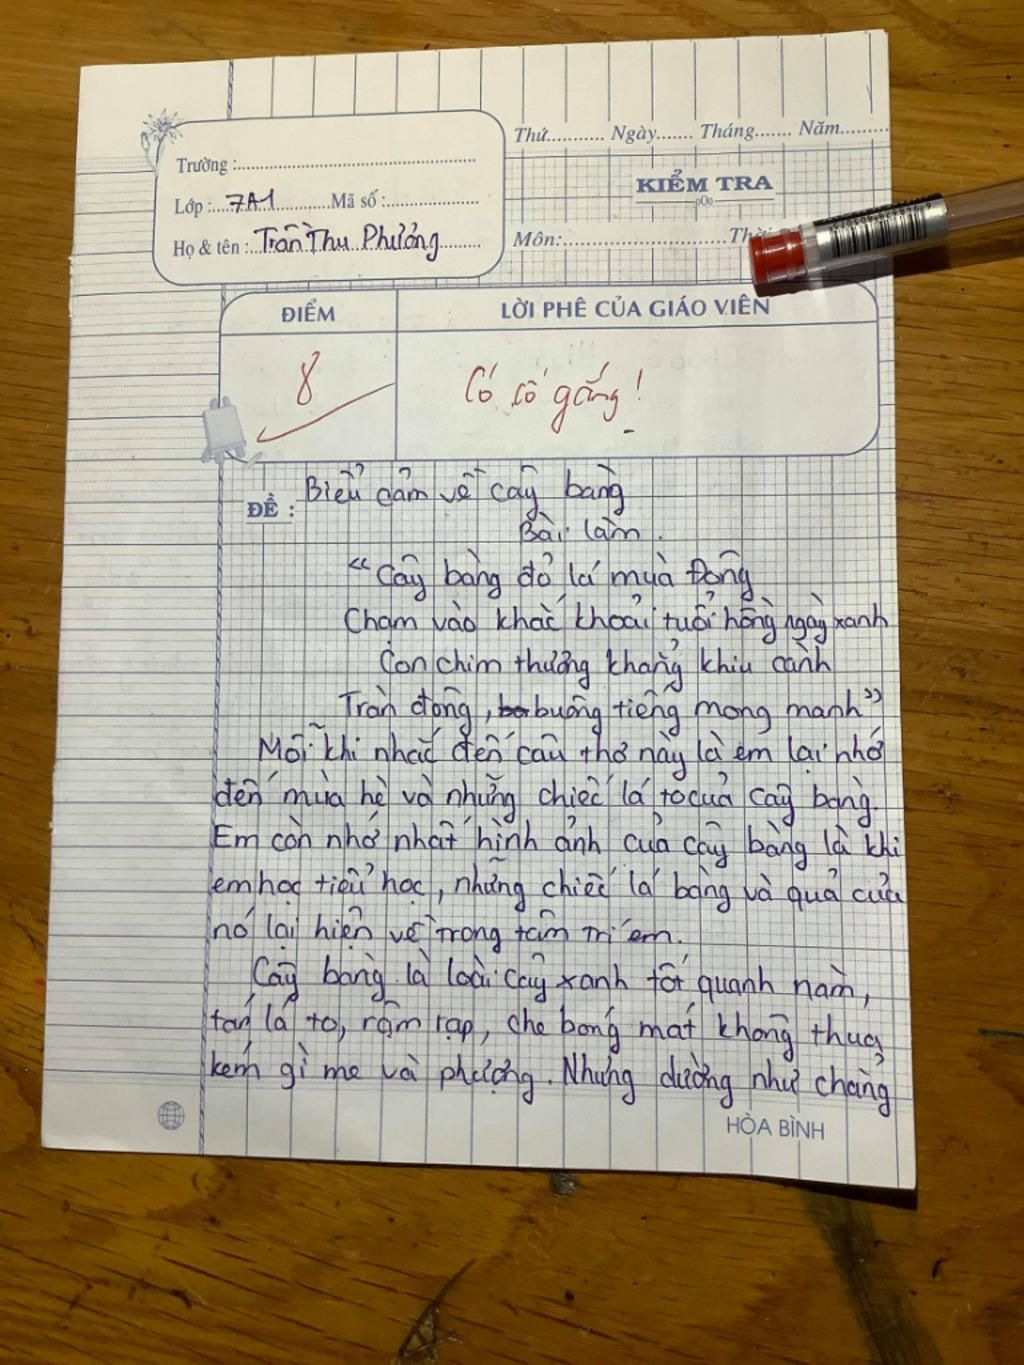 Thứ........... Ngày....... Tháng....... Năm.........
Trường :
KIỂM TRA
Lớp : 7A1 Mã số :
Họ & tên : Trần Thu Phương
Môn:
ĐIỂM
LỜI PHÊ CỦA GIÁO VIÊN
8
Có cố gắng!
ĐỀ : Biểu cảm về cây bàng
Bài làm.
"Cây bàng đỏ lá mùa Đông
Chạm vào khắc khoải tuổi hồng ngày xanh
Con chim thường khẳng khiu cành
Tràn đông, buông tiếng mong manh"
Mỗi khi nhắc đến câu thơ này là em lại nhớ
đến mùa hè và những chiếc lá to của cây bàng.
Em còn nhớ nhất hình ảnh của cây bàng là khi
em học tiểu học, những chiếc lá bàng và quả của
nó lại hiện về trong tâm trí em.
Cây bàng là loài cây xanh tốt quanh năm,
tán lá to, rậm rạp, che bóng mát không thua
kém gì me và phượng. Nhưng dường như chẳng
HÒA BÌNH